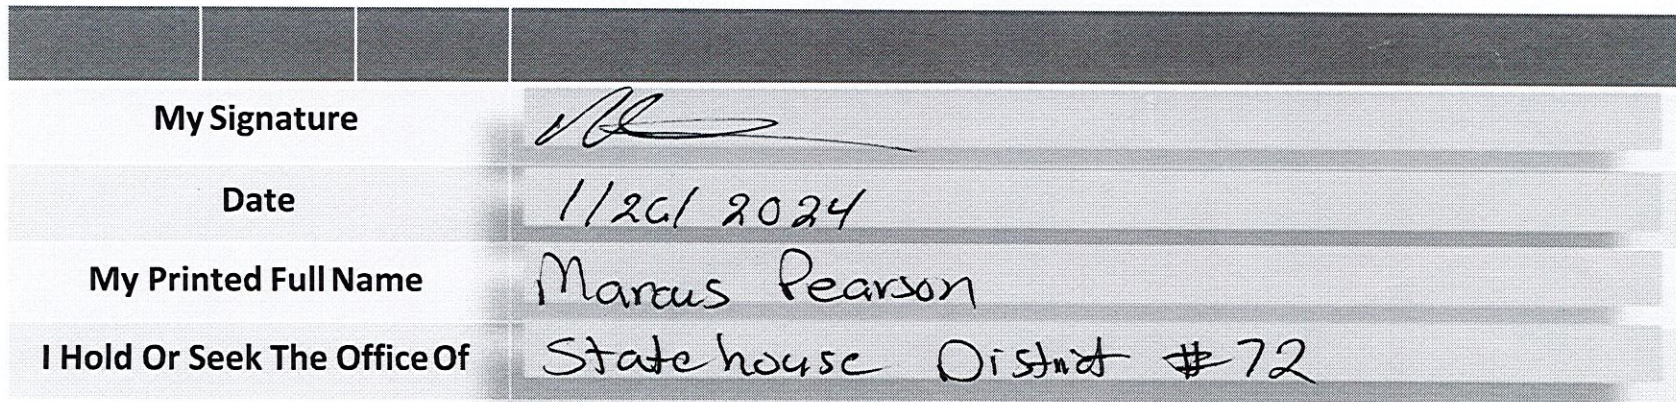 My Signature
Date 1/26/2024
My Printed Full Name Marcus Pearson
I Hold Or Seek The Office Of Statehouse District #72